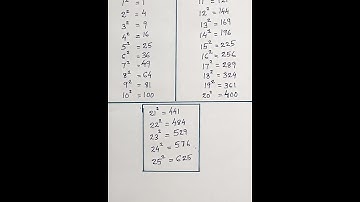 1² = 1
2² = 4
3² = 9
4² = 16
5² = 25
6² = 36
7² = 49
8² = 64
9² = 81
10² = 100
11² = 121
12² = 144
13² = 169
14² = 196
15² = 225
16² = 256
17² = 289
18² = 324
19² = 361
20² = 400
21² = 441
22² = 484
23² = 529
24² = 576
25² = 625